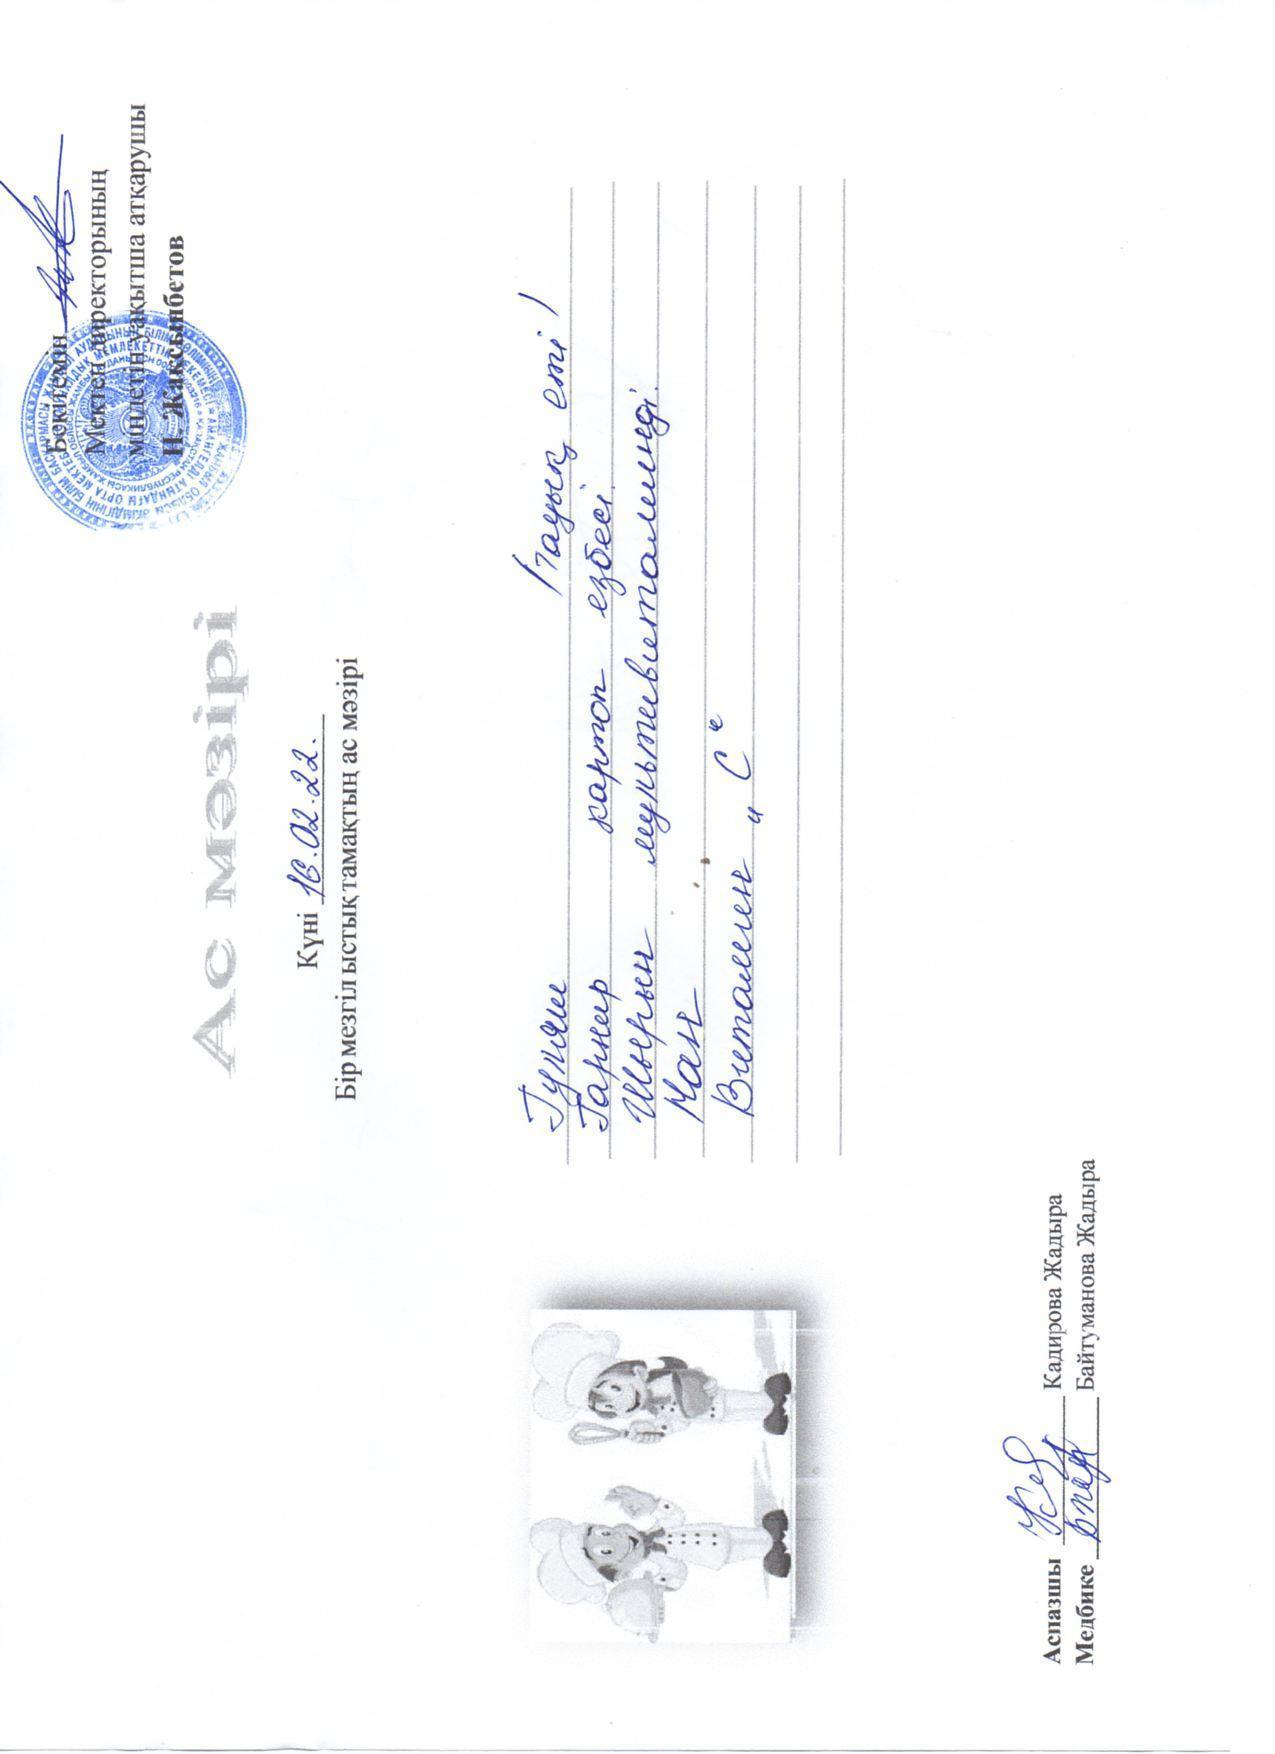 Бекітемін
Мектеп директорының
міндетін уақытша атқарушы
Н. Жаксынбетов
Ас мәзірі
Күні 16.02.22.
Бір мезгіл ыстық тамақтың ас мәзірі
Гуляш /тауық еті/
Гарнир картоп езбесі.
Шырын мультивитаминді.
Нан
Витамин "С"
Аспазшы Кадирова Жадыра
Медбике Байтуманова Жадыра